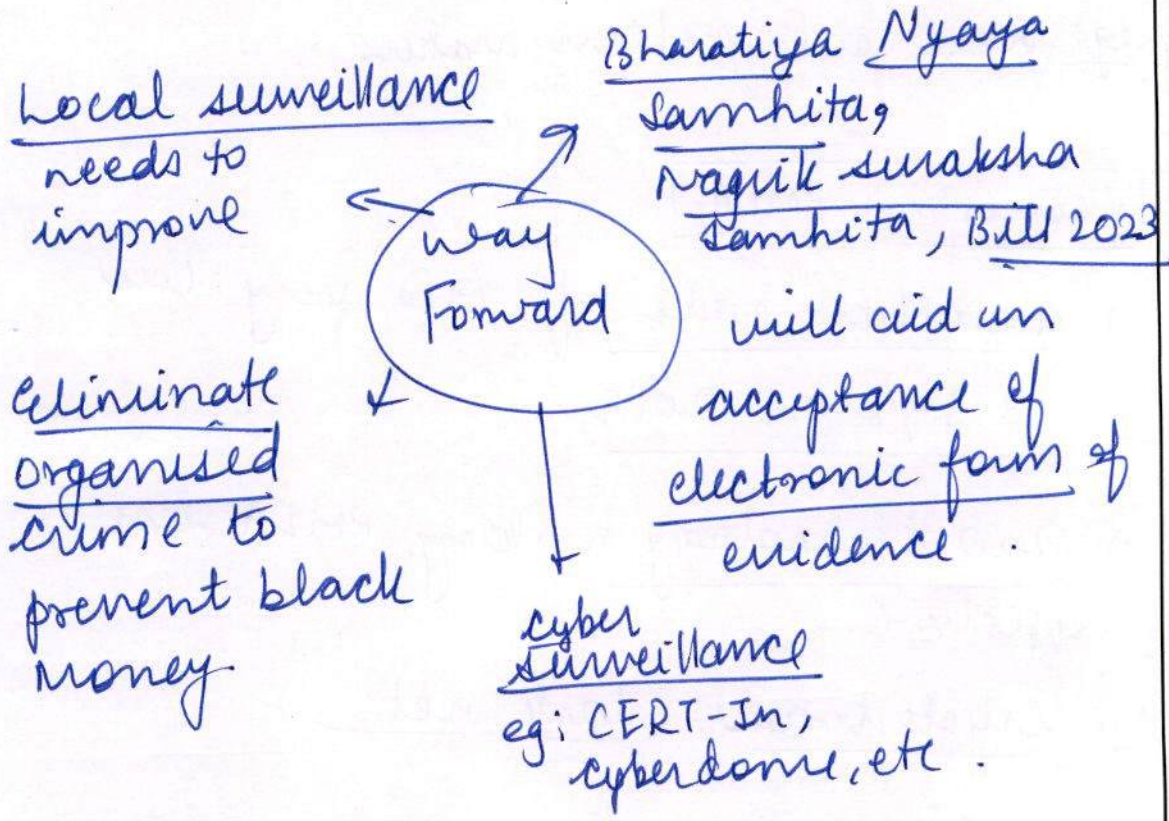 Local surveillance
needs to
improve
Way
Forward
Bharatiya Nyaya
Samhita,
Nagrik suraksha
Samhita, Bill 2023
will aid in
acceptance of
electronic form of
evidence .
Eliminate
organised
crime to
prevent black
money.
cyber
surveillance
eg: CERT-In,
cyberdome, etc .